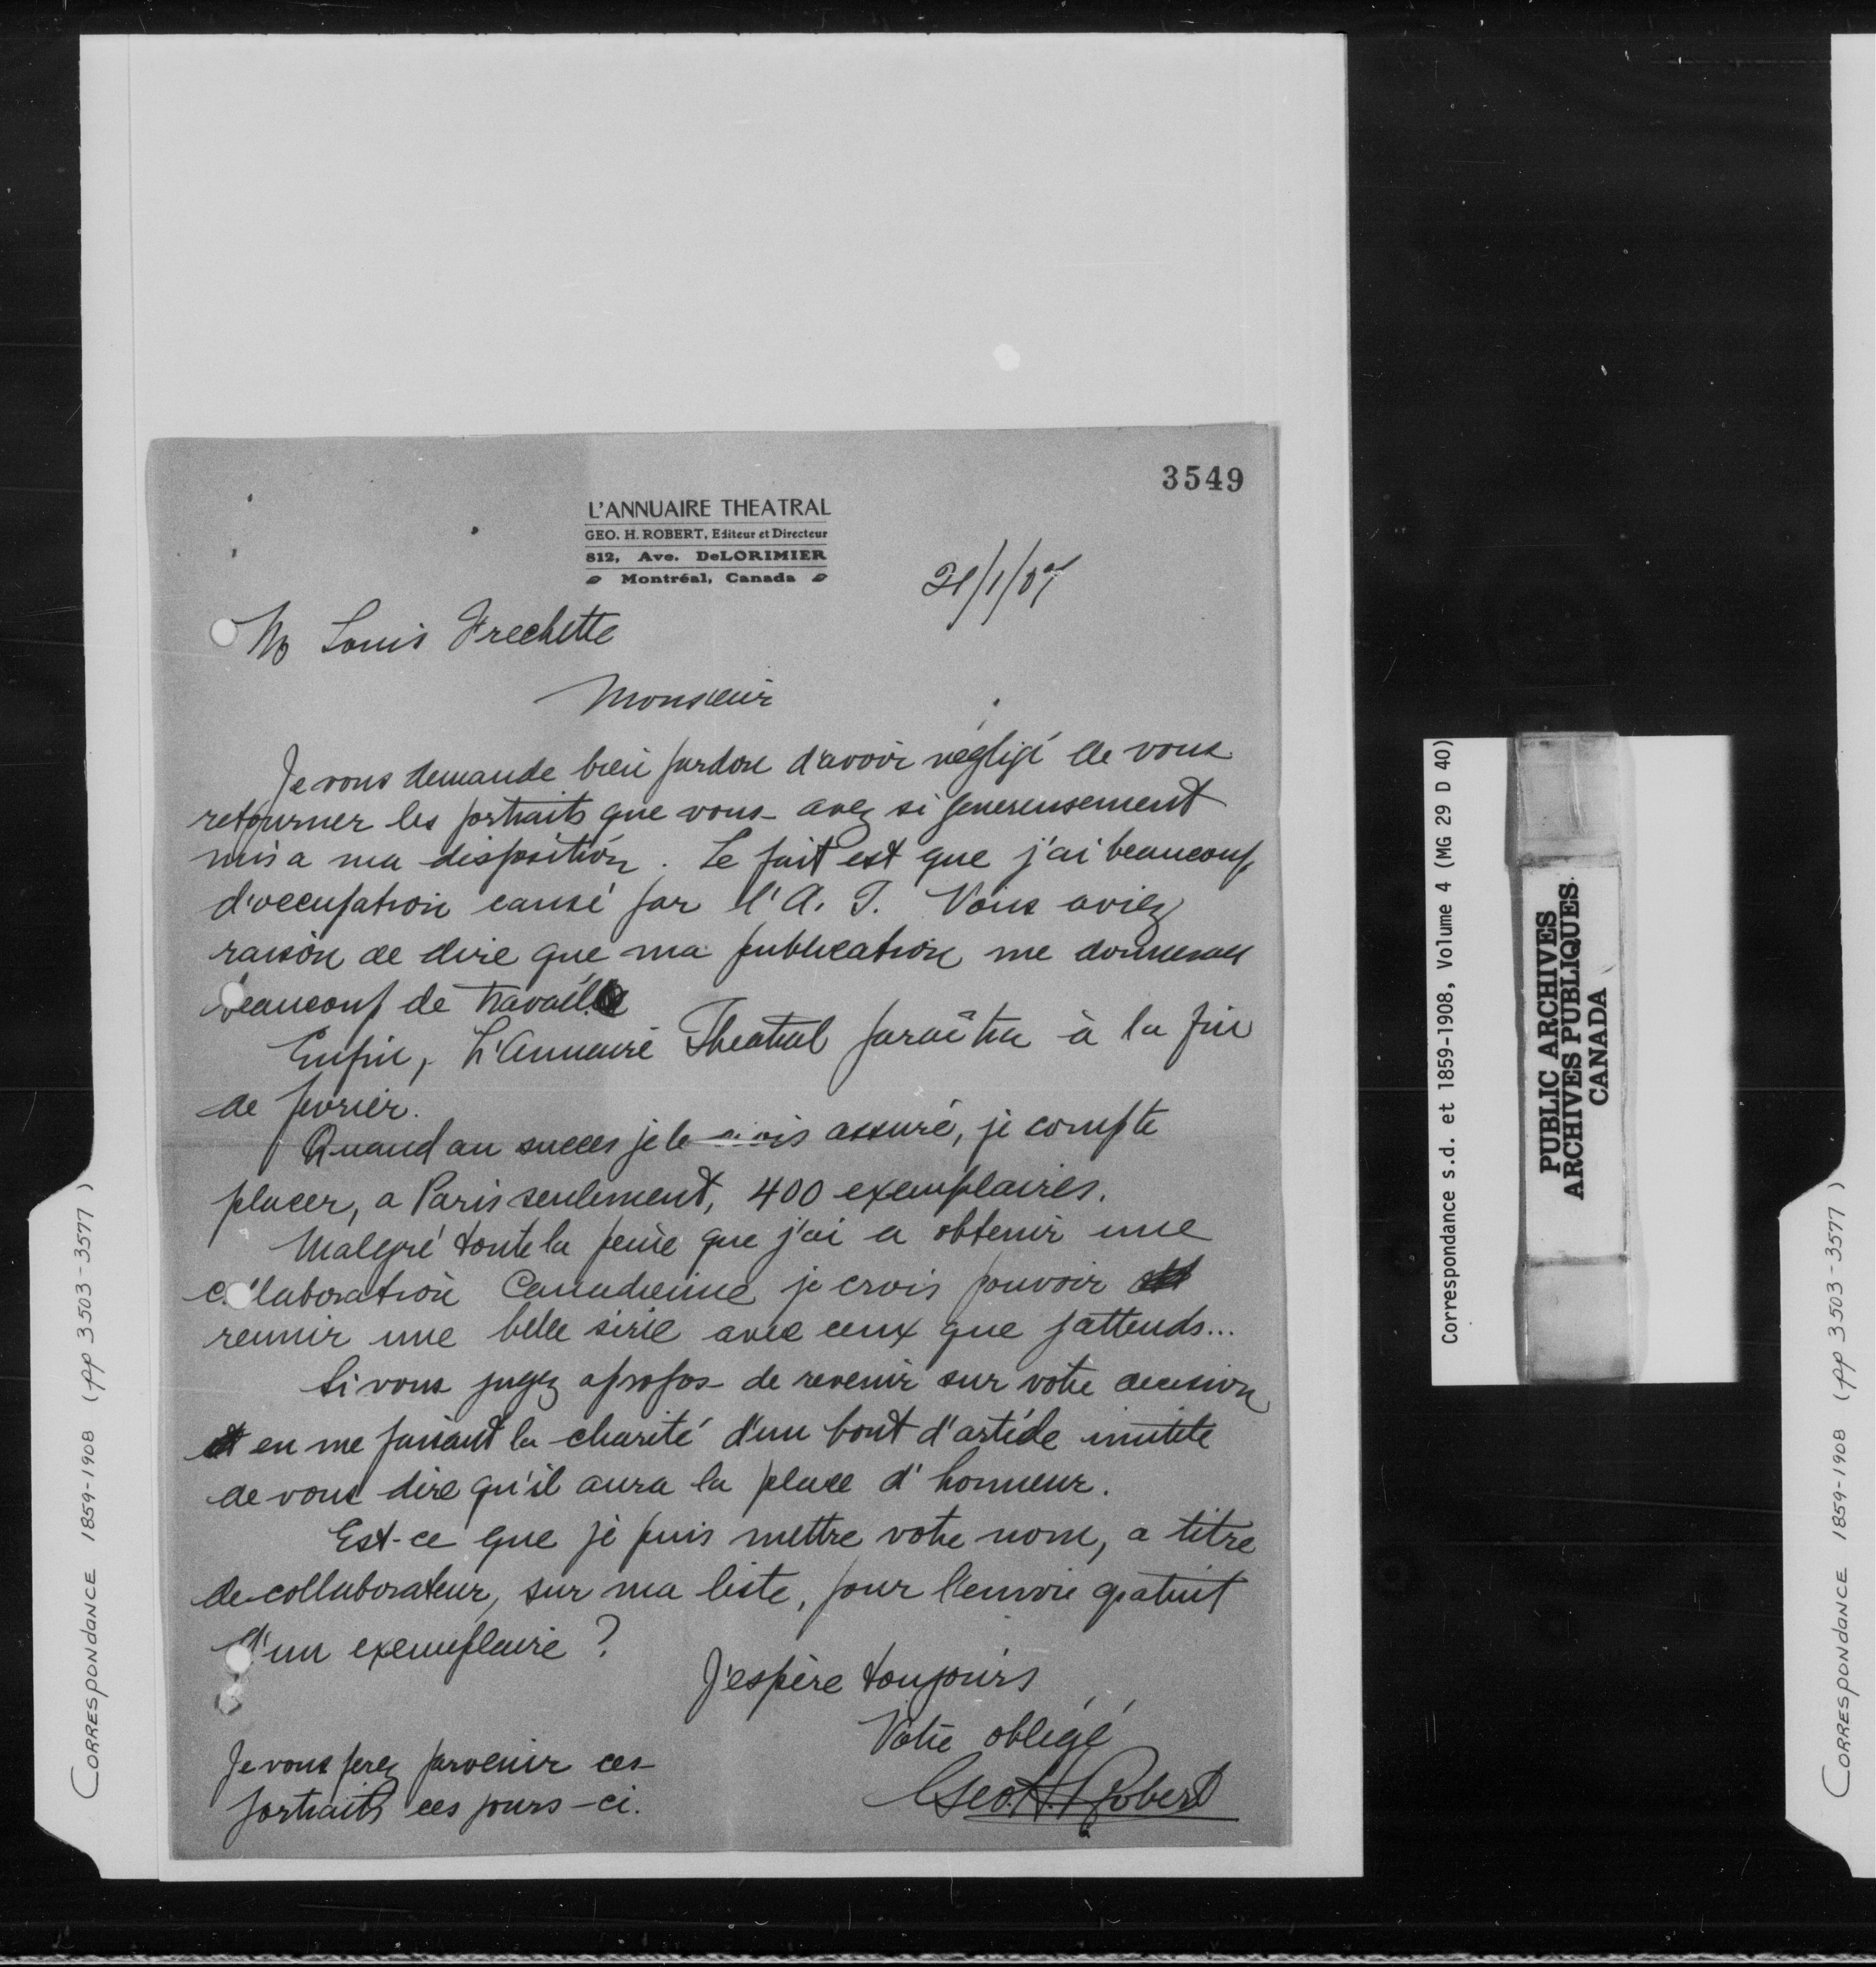 3549
L'ANNUAIRE THEATRAL
GEO. H. ROBERT, Editeur et Directeur
812, Ave. DeLORIMIER
Montréal, Canada
21/1/07
M Louis Frechette
Monsieur
Je vous demande bien pardon d'avoir négligé de vous
retourner les portraits que vous avez si genereusement
mis a ma disposition. Le fait est que j'ai beaucoup
d'occupation causé par l'A. T. Vous aviez
raison de dire que ma publication me donnerait
beaucoup de travail
Enfin, L'Annuaire Theatral paraîtra à la fin
de fevrier.
Quand au succes je le crois assuré, je compte
placer, a Paris seulement, 400 exemplaires.
Malgré toute la peine que j'ai a obtenir une
collaboration Canadienne je crois pouvoir
reunir une belle série avec ceux que j'attends...
Si vous jugez apropos de revenir sur votre decision
et en me faisant la charité d'un bout d'article inutile
de vous dire qu'il aura la place d'honneur.
Est-ce que je puis mettre votre nom, a titre
de collaborateur, sur ma liste, pour l'envoie gratuit
d'un exemplaire?
J'espère toujours
Votre obligé
Geo. H. Robert
Je vous ferez parvenir ces
portraits ces jours-ci.
CORRESPONDANCE 1859-1908 (pp 3503-3577)
Correspondance s.d. et 1859-1908, Volume 4 (MG 29 D 40)
PUBLIC ARCHIVES
ARCHIVES PUBLIQUES
CANADA
CORRESPONDANCE 1859-1908 (pp 3503-3577)